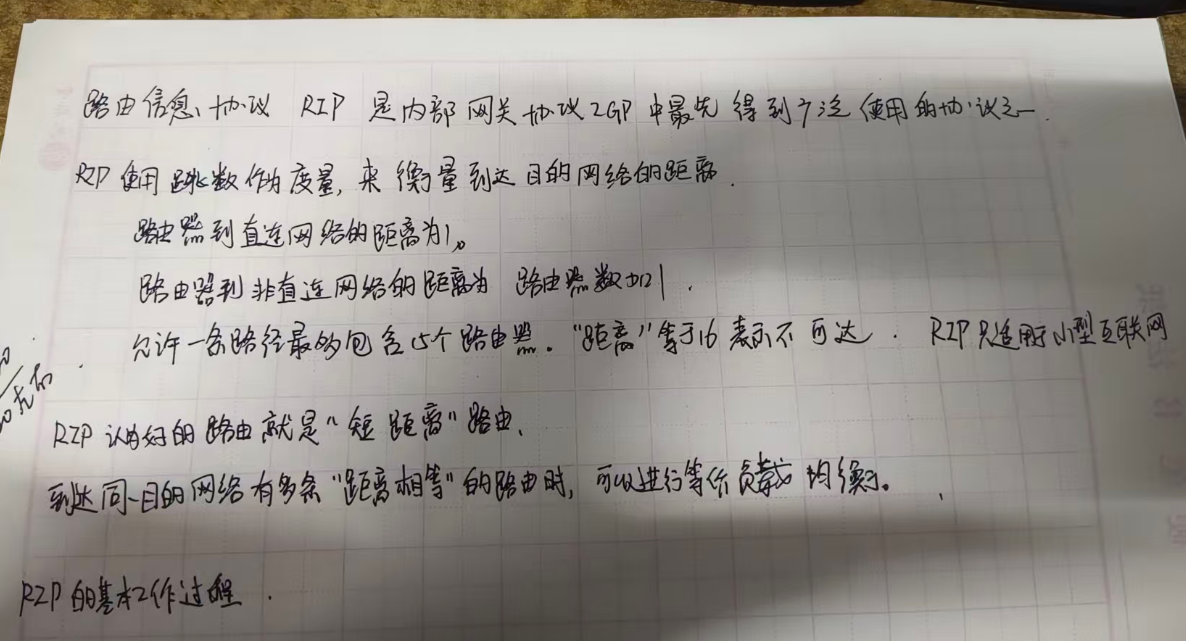 路由信息协议 RIP 是内部网关协议IGP中最先得到广泛使用的协议之一.
RIP使用跳数作为度量,来衡量到达目的网络的距离.
路由器到直连网络的距离为1。
路由器到非直连网络的距离为 路由器数加1.
允许一条路径最多包含15个路由器。"距离"等于16表示不可达. RIP只适用小型互联网
RIP认为好的路由就是"短距离"路由、
到达同一目的网络有多条"距离相等"的路由时,可以进行等价负载均衡。
RIP的基本工作过程.